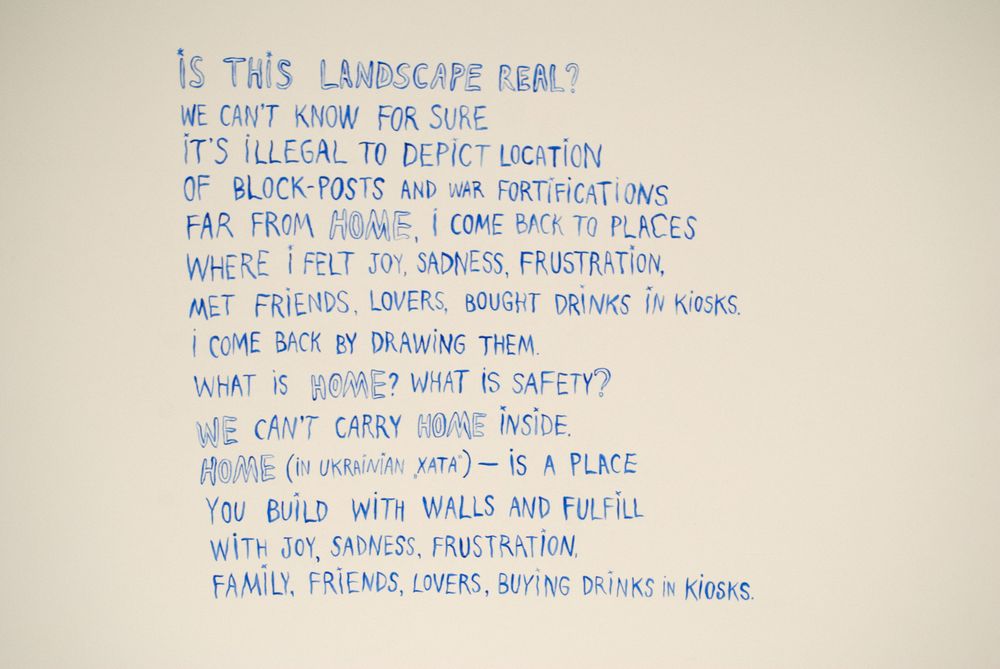 iS THiS LANDSCAPE REAL?
WE CAN'T KNOW FOR SURE
iT'S iLLEGAL TO DEPiCT LOCATiON
OF BLOCK-POSTS AND WAR FORTiFiCATiONS
FAR FROM HOME, i COME BACK TO PLACES
WHERE i FELT JOY, SADNESS, FRUSTRATiON,
MET FRiENDS, LOVERS, BOUGHT DRiNKS iN KiOSKS.
i COME BACK BY DRAWiNG THEM.
WHAT iS HOME? WHAT iS SAFETY?
WE CAN'T CARRY HOME iNSiDE.
HOME (iN UKRAiNiAN „XATA") — iS A PLACE
YOU BUiLD WiTH WALLS AND FULFiLL
WiTH JOY, SADNESS, FRUSTRATiON,
FAMiLY, FRiENDS, LOVERS, BUYiNG DRiNKS iN KiOSKS.